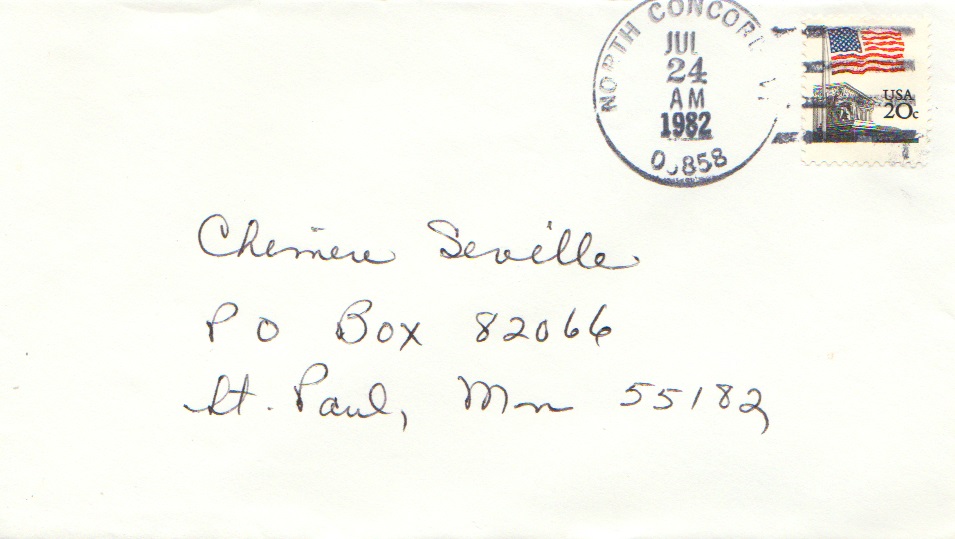 NORTH CONCORD V
JUL
24
AM
1982
05858
USA
20c
Chemere Seville
PO Box 82066
St. Paul, Mn 55182